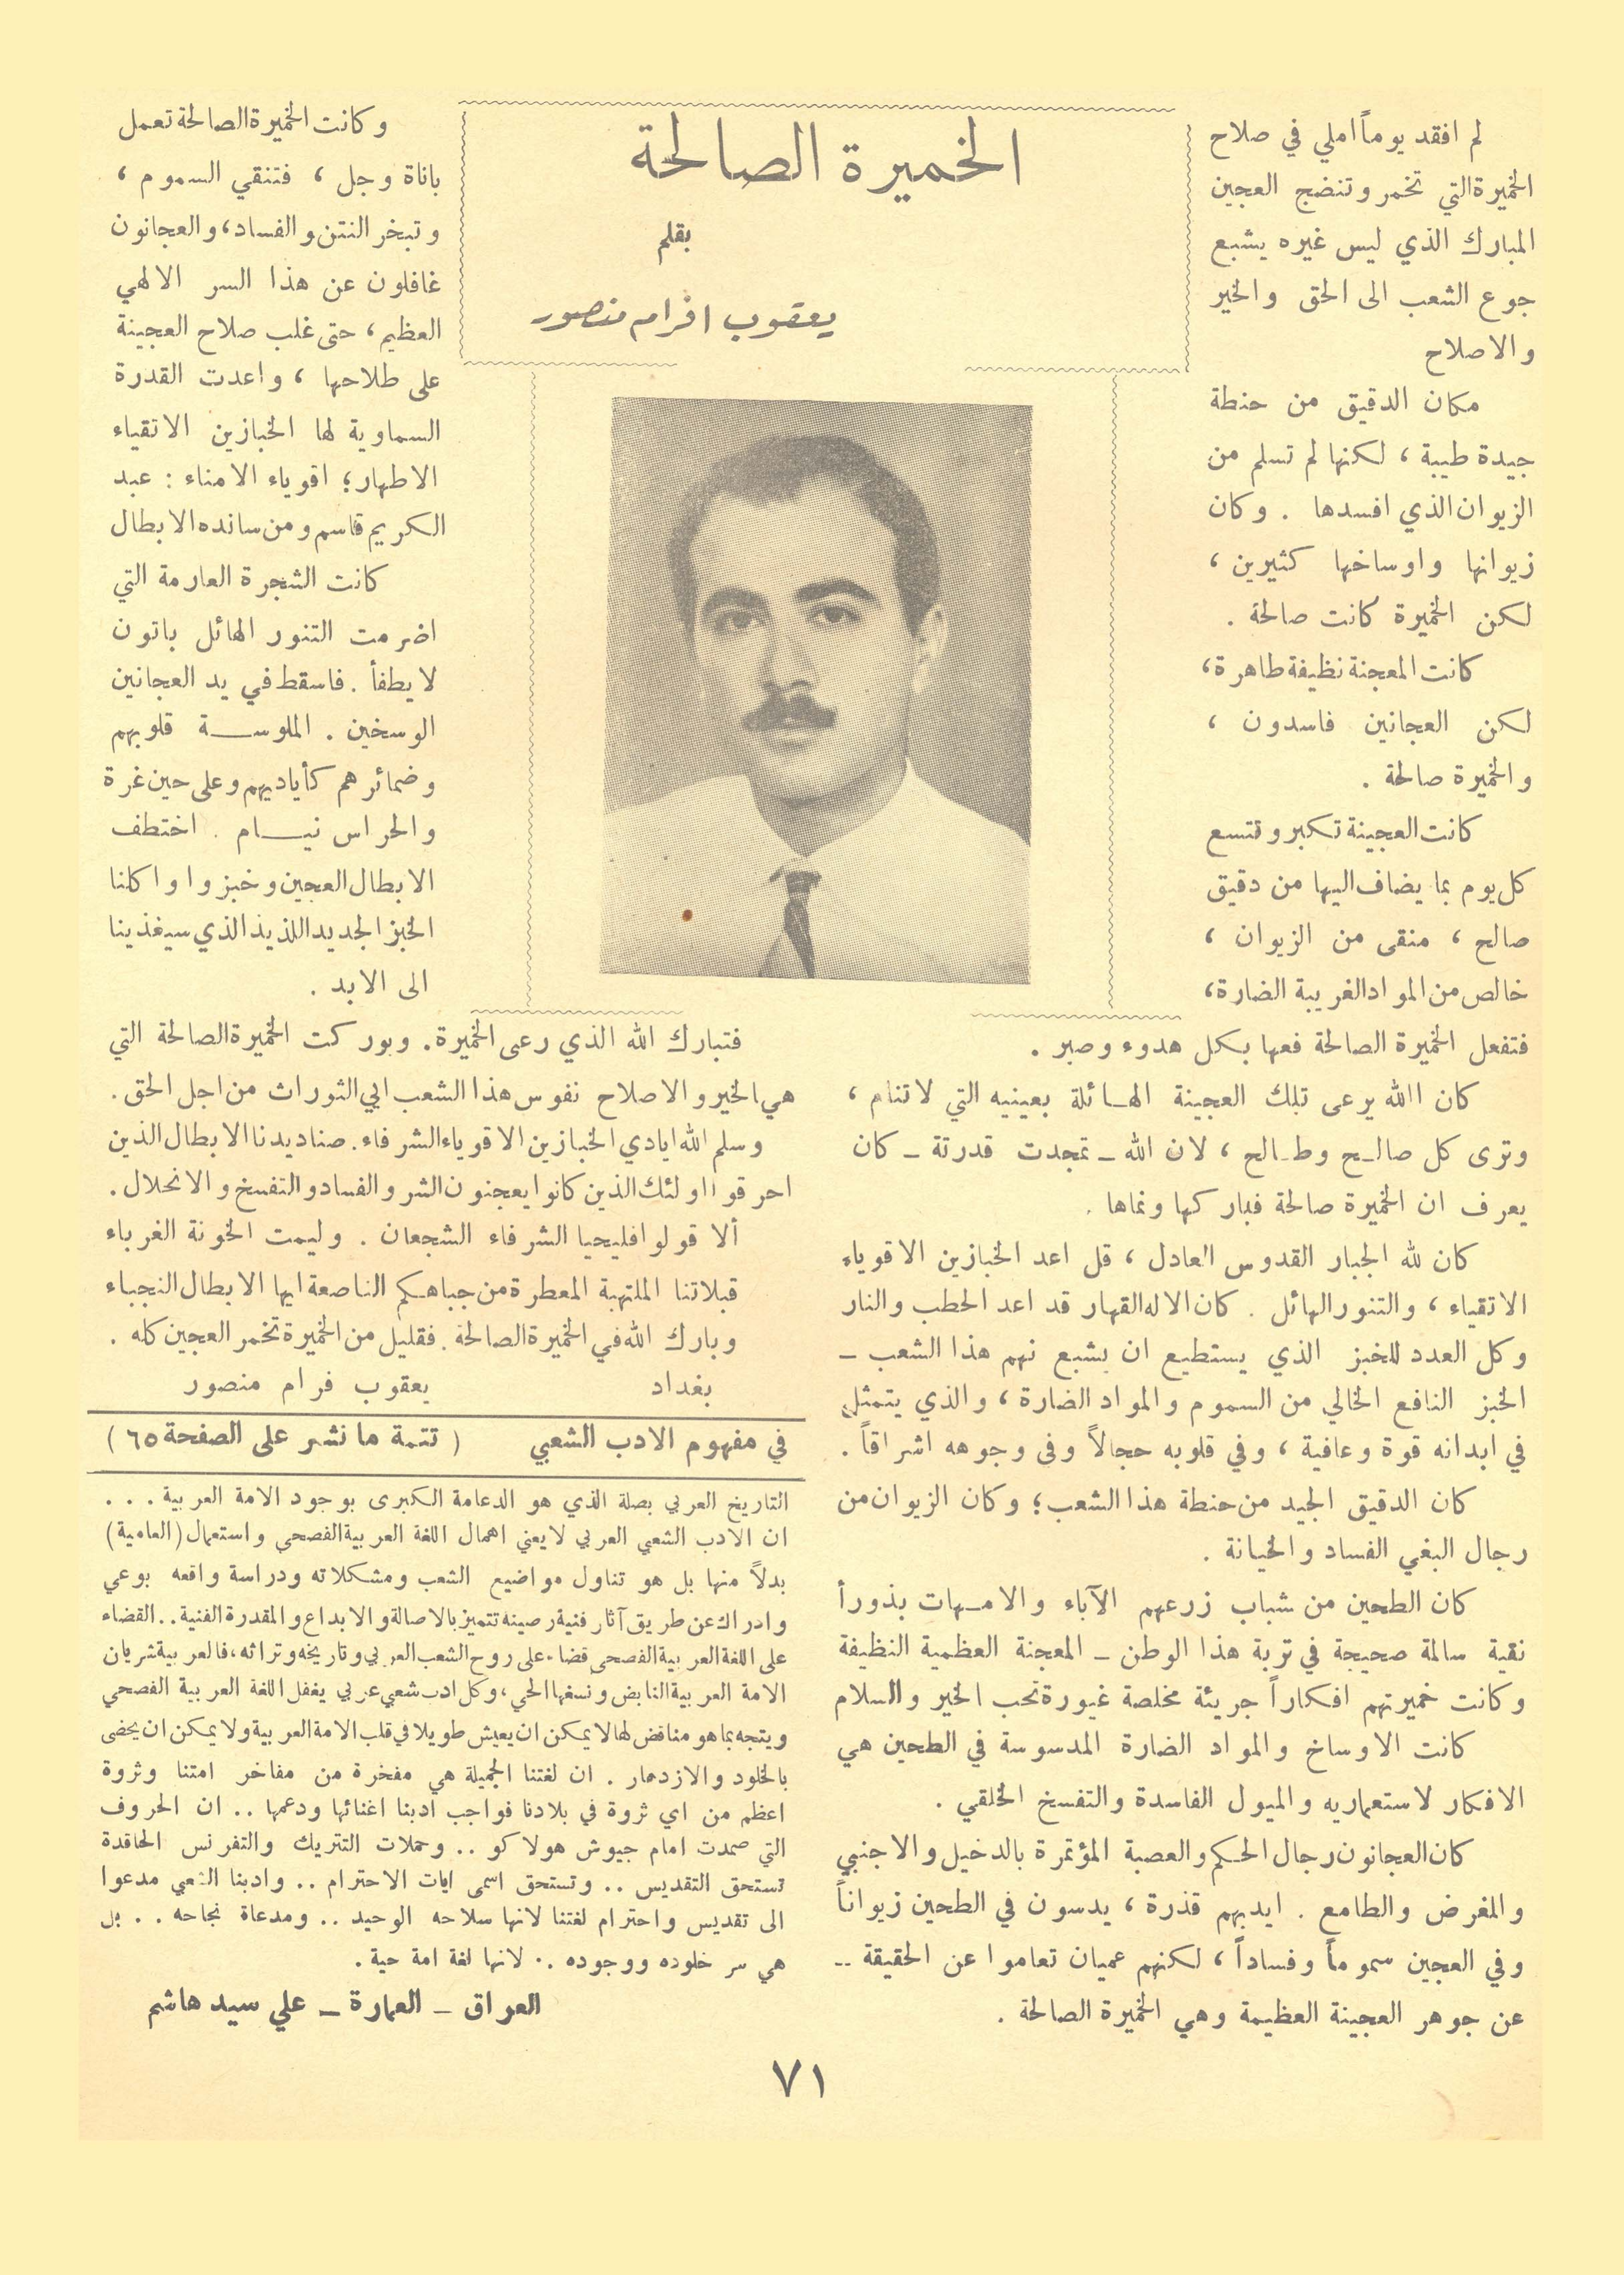 الخميرة الصالحة
بقلم
يعقوب افرام منصور
لم افقد يوماً املي في صلاح
الخميرة التي تخمر وتنضج العجين
المبارك الذي ليس غيره يشبع
جوع الشعب الى الحق والخير
والاصلاح
مكان الدقيق من حنطة
جيدة طيبة ، لكنها لم تسلم من
الزيوان الذي افسدها . وكان
زيوانها واوساخها كثيرين ،
لكن الخميرة كانت صالحة .
كانت المعجنة نظيفة طاهرة ،
لكن العجانين فاسدون ،
والخميرة صالحة .
كانت العجينة تكبر وتتسع
كل يوم بما يضاف اليها من دقيق
صالح ، منقى من الزيوان ،
خالص من المواد الغريبة الضارة ،
فتفعل الخميرة الصالحة فعها بكل هدوء وصبر .
كان االله يرعى تلك العجينة الهائلة بعينيه التي لا تنام ،
وترى كل صالح وطالح ، لان الله ـ تمجدت قدرتة ـ كان
يعرف ان الخميرة صالحة فباركها ونماها .
كان لله الجبار القدوس العادل ، قل اعد الخبازين الاقوياء
الاتقياء ، والتنور الهائل . كان الاله القهار قد اعد الحطب والنار
وكل العدد للخبز الذي يستطيع ان يشبع نهم هذا الشعب ـ
الخبز النافع الخالي من السموم والمواد الضارة ، والذي يتمثل
في ابدانه قوة وعافية ، وفي قلوبه حجالاً وفى وجوهه اشراقاً .
كان الدقيق الجيد من حنطة هذا الشعب ؛ وكان الزيوان من
رجال البغي الفساد والخيانة .
كان الطحين من شباب زرعهم الآباء والامهات بذوراً
نقية سالمة صحيحة في تربة هذا الوطن ـ المعجنة العظمية النظيفة
وكانت خميرتهم افكاراً جريئة مخلصة غيورة تحب الخير والسلام
كانت الاوساخ والمواد الضارة المدسوسة في الطحين هي
الافكار لاستعماريه والميول الفاسدة والتفسخ الخلقي .
كان العجانون رجال الحكم والعصبة المؤتمرة بالدخيل والاجنبي
والمغرض والطامع . ايديهم قذرة ، يدسون في الطحين زيواناً
وفي العجين سموماً وفساداً ، لكنهم عميان تعاموا عن الحقيقة ..
عن جوهر العجينة العظيمة وهي الخميرة الصالحة .
وكانت الخميرة الصالحة تعمل
باناة وجل ، فتنقي السموم ،
وتبخر النتن والفساد ، والعجانون
غافلون عن هذا السر الالهي
العظيم ، حتى غلب صلاح العجينة
على طلاحها ، واعدت القدرة
السماوية لها الخبازين الاتقياء
الاطهار ؛ اقوياء الامناء : عبد
الكريم قاسم ومن سانده الابطال
كانت الشجرة العارمة التي
اضرمت التنور الهائل باتون
لا يطفأ . فاسقط في يد العجانين
الوسخين . الملوسة قلوبهم
وضمائرهم كأياديهم وعلى حين غرة
والحراس نيام . اختطف
الابطال العجين وخبزوا واكلنا
الخبز الجديد اللذيذ الذي سيغذينا
الى الابد .
فتبارك الله الذي رعى الخميرة . وبوركت الخميرة الصالحة التي
هي الخير والاصلاح نفوس هذا الشعب ابي الثورات من اجل الحق .
وسلم الله ايادي الخبازين الاقوياء الشرفاء . صناديدنا الابطال الذين
احرقوا اولئك الذين كانوا يعجنون الشر والفساد والتفسخ والانحلال .
ألا قولوا فليحيا الشرفاء الشجعان . وليمت الخونة الغرباء
قبلاتنا الملتهبة المعطرة من جباهكم الناصعة ايها الابطال النجباء
وبارك الله في الخميرة الصالحة . فقليل من الخميرة تخمر العجين كله .
بغداد يعقوب فرام منصور
في مفهوم الادب الشعبي ( تتمة ما نشر على الصفحة ٦٥ )
التاريخ العربي بصلة الذي هو الدعامة الكبرى بوجود الامة العربية . . .
ان الادب الشعبي العربي لا يعني اهمال اللغة العربية الفصحى واستعمال (العامية)
بدلاً منها بل هو تناول مواضيع الشعب ومشكلاته ودراسة واقعه بوعي
وادراك عن طريق آثار فنية رصينه تتميز بالاصالة والابداع والمقدرة الفنية . . القضاء
على اللغة العربية الفصحى قضاء على روح الشعب العربي وتاريخه وتراثه ، فالعربية شريان
الامة العربية النابض ونسغها الحي ، وكل ادب شعبي عربي يغفل اللغة العربية الفصحي
ويتجه بما هو مناقض لها لا يمكن ان يعيش طويلا في قلب الامة العربية ولا يمكن ان يحضى
بالخلود والازدهار . ان لغتنا الجميلة هي مفخرة من مفاخر امتنا وثروة
اعظم من اي ثروة في بلادنا فواجب ادبنا اغنائها ودعمها .. ان الحروف
التي صمدت امام جيوش هولاكو .. وحملات التتريك والتفرنس الحاقدة
تستحق التقديس .. وتستحق اسمى ايات الاحترام .. وادبنا الشعبي مدعوا
الى تقديس واحترام لغتنا لانها سلاحه الوحيد .. ومدعاة نجاحه . . بل
هي سر خلوده ووجوده .. لانها لغة امة حية .
العراق ـ العمارة ـ علي سيد هاشم
٧١